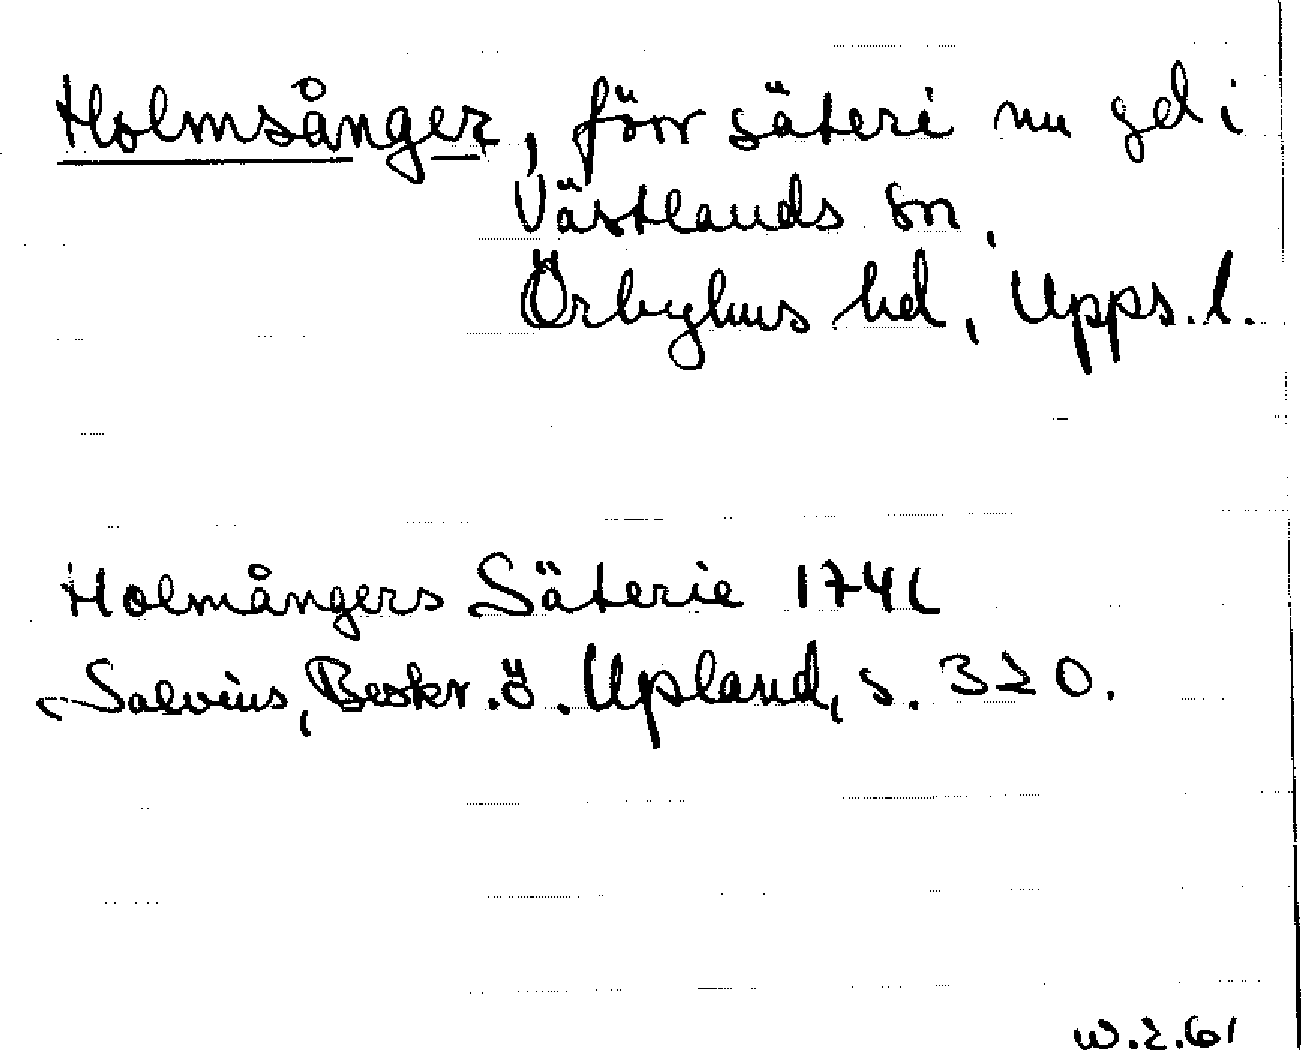 Holmsånger, förr säteri nu gd i
Västlands sn,
Örbyhus hd, Upps. l.
Holmångers Säterie 1741
Salvius, Beskr. ö. Upland, s. 320.
W.2.61